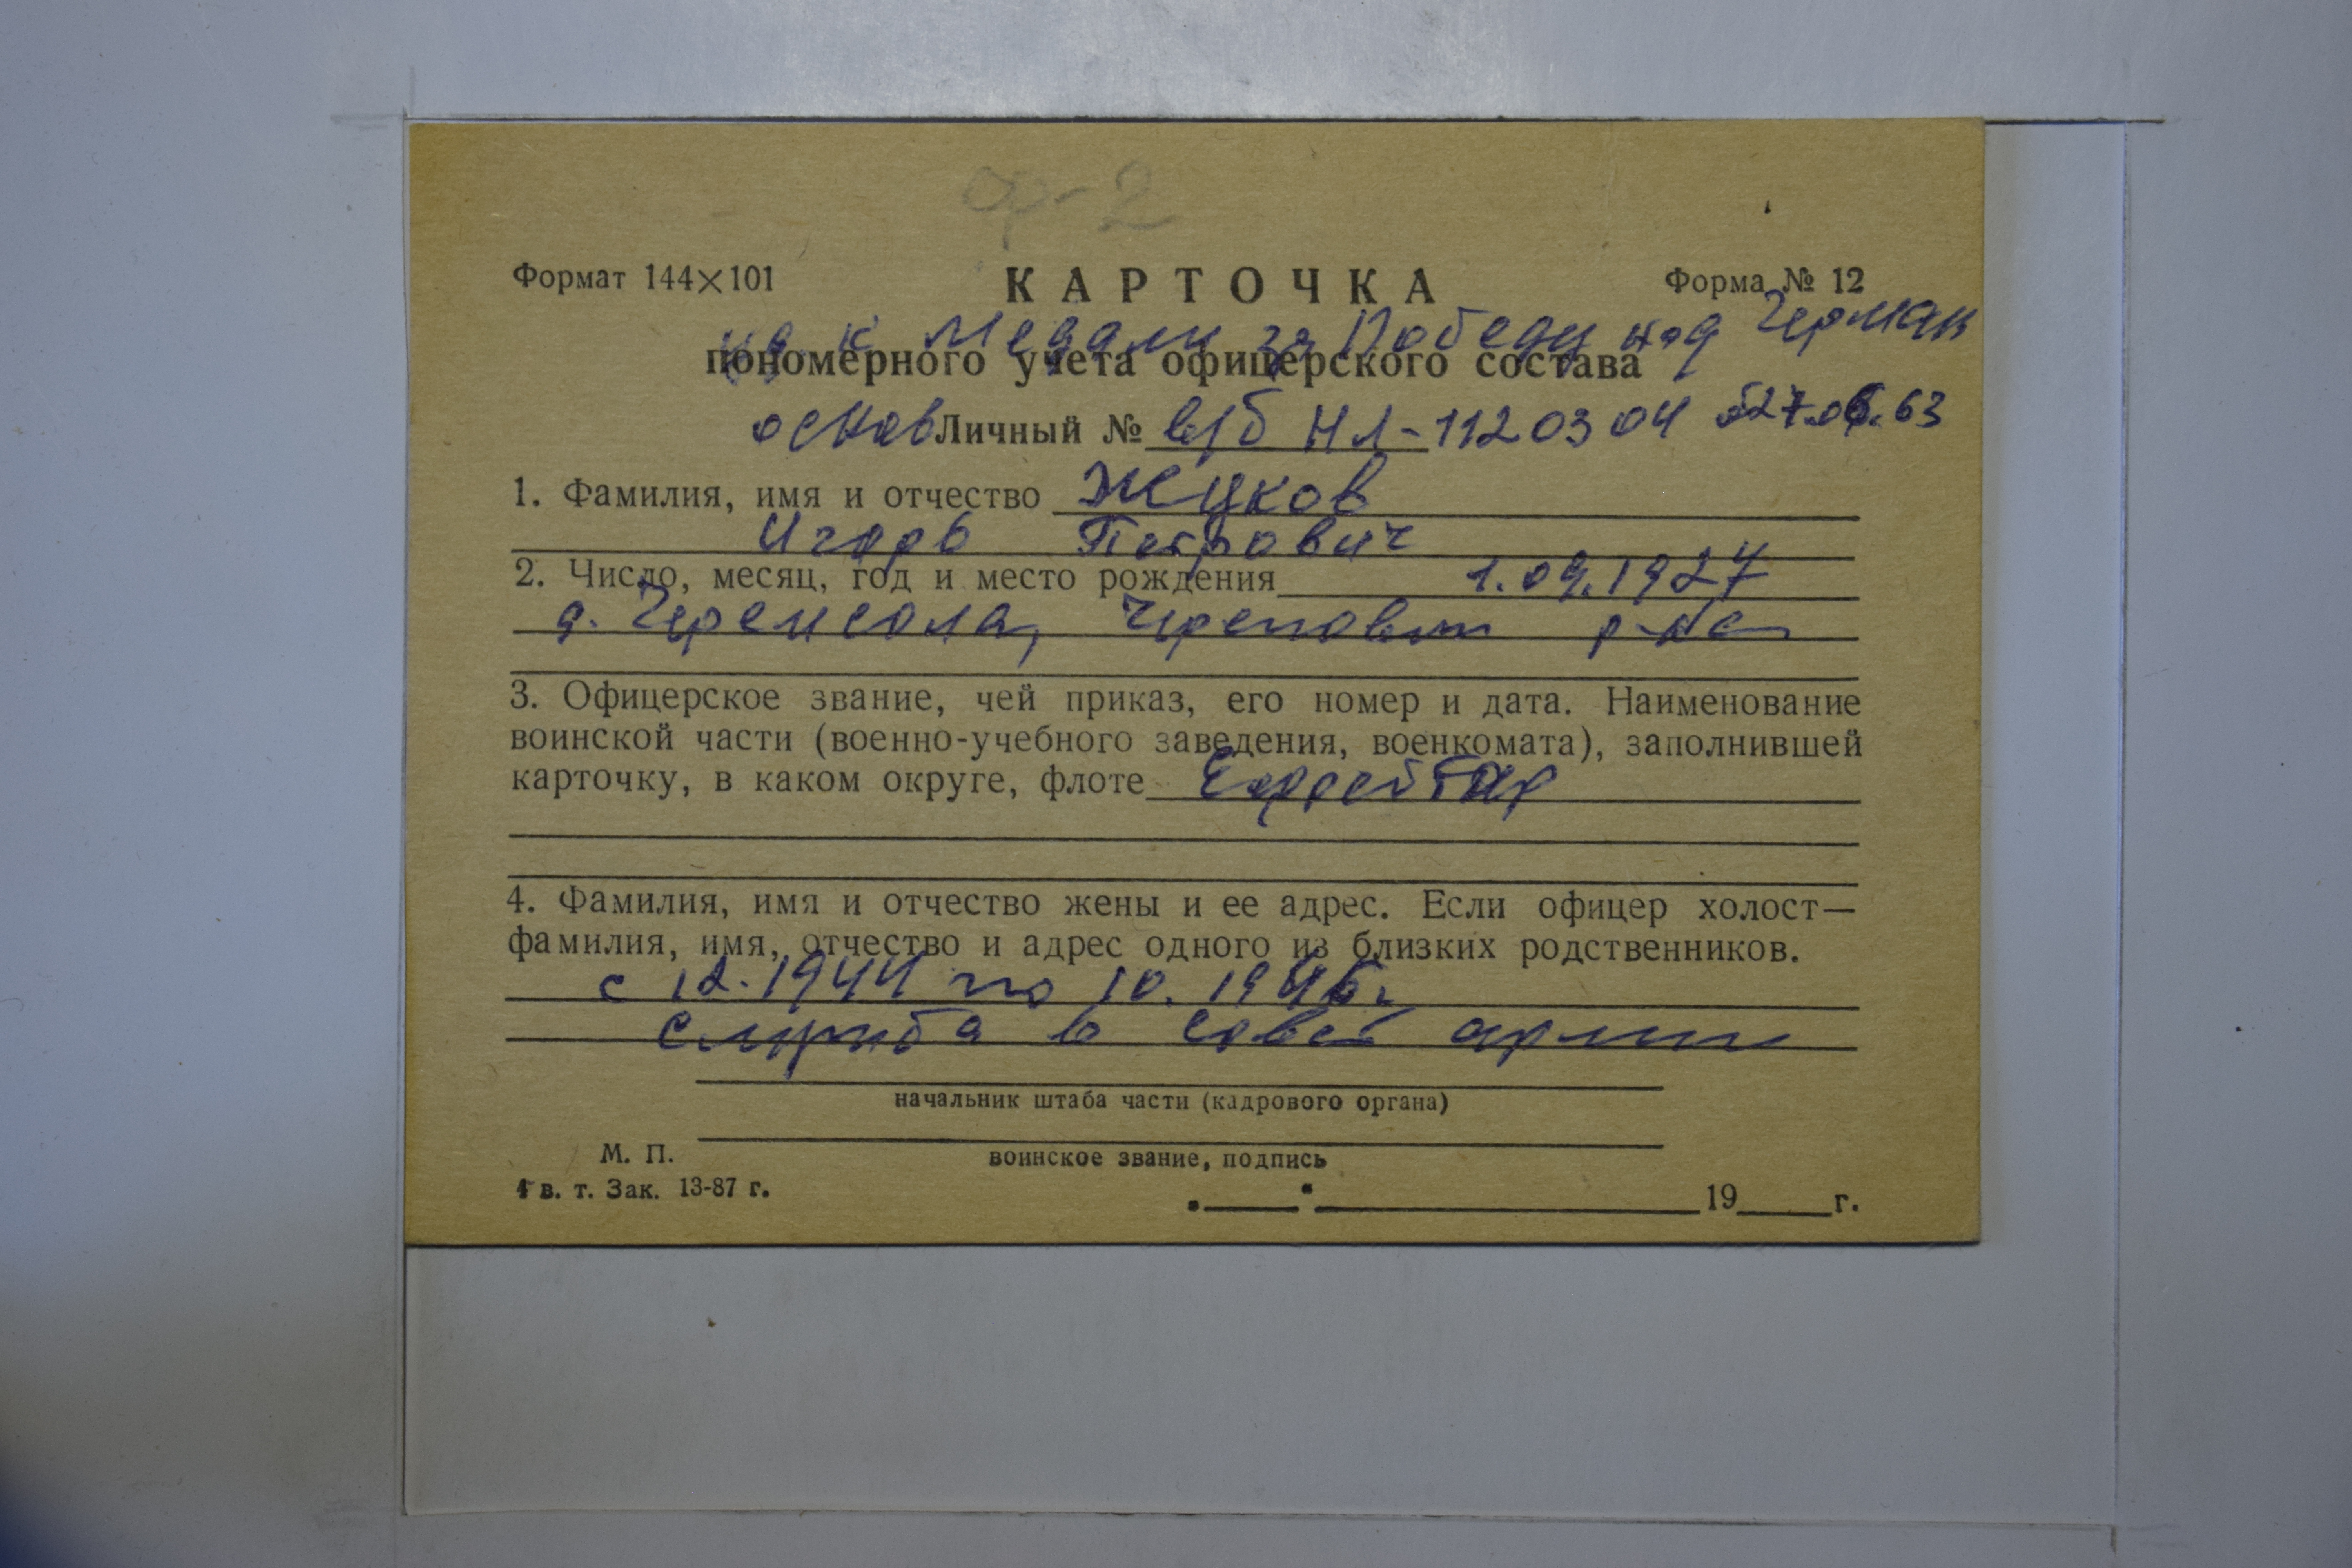 ор-2
Формат 144×101
КАРТОЧКА
Форма № 12
уд. к Медали за Победу над Герман
пономерного учета офицерского состава
основ Личный № в/б НЛ-1120304 от 27.06.63
1. Фамилия, имя и отчество Жуков
Игорь Петрович
2. Число, месяц, год и место рождения 1.09.1927
д. Черемсола, Череповец р-на
3. Офицерское звание, чей приказ, его номер и дата. Наименование
воинской части (военно-учебного заведения, военкомата), заполнившей
карточку, в каком округе, флоте Ефрейтор
4. Фамилия, имя и отчество жены и ее адрес. Если офицер холост—
фамилия, имя, отчество и адрес одного из близких родственников.
с 12.1944 по 10.1946г
служба в совет армии
начальник штаба части (кадрового органа)
М. П.
воинское звание, подпись
4 в. т. Зак. 13-87 г.
19 г.